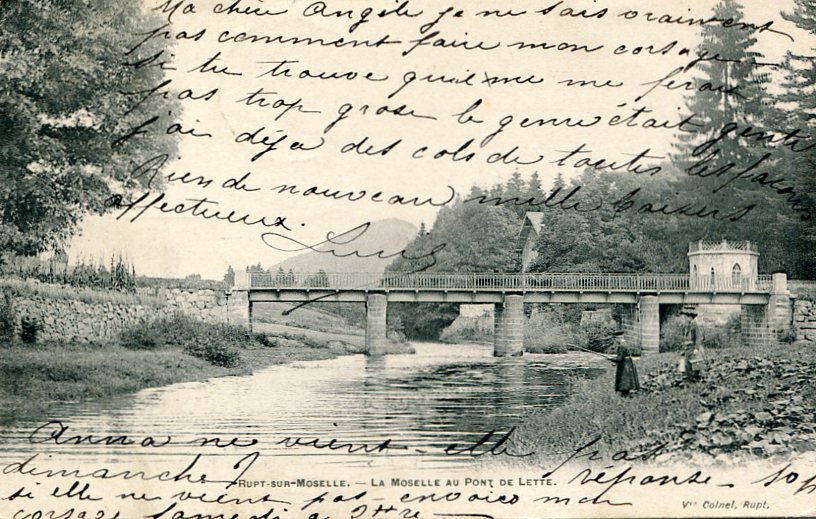 Ma chère Angèle je ne sais vraiment
pas comment faire mon corsage
si tu trouve qu'il me ferait
pas trop grosse le genre était gentil
j'ai déja des cols de toutes les façons
Rien de nouveau mille baisers
affectueux.
Anna ne vient-elle pas
dimanche? réponse. S.V.P
RUPT-SUR-MOSELLE. — LA MOSELLE AU PONT DE LETTE.
si elle ne vient pas - envoie mon
Vve Colnel, Rupt.
corsage Samedi a